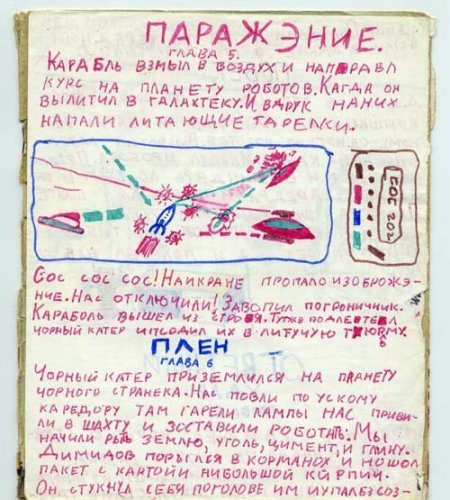 ПАРАЖЭНИЕ.
ГЛАВА 5.
КАРАБЛЬ ВЗМЫЛ В ВОЗДУХ И НАПРАВЛ
КУРС НА ПЛАНЕТУ РОБОТОВ. КАГДА ОН
ВЫЛИТИЛ В ГАЛАХТЕКУ. И ВДРУК НА НИХ
НАПАЛИ ЛИТАЮЩИЕ ТАРЕЛКИ.
СОС 202
СОС СОС СОС! НА ИКРАНЕ ПРОПАЛО ИЗОБРОЖЭ-
НИЕ. НАС ОТКЛЮЧИЛИ! ЗАВОПИЛ ПОГРОНИЧНИК.
КАРАБОЛЬ ВЫШЕЛ ИЗ СТРОЯ. ТУТЖЭ ПОДЛЕТЕЛ
ЧОРНЫЙ КАТЕР И ПОСОДИЛ ИХ В ЛИТУЧУЮ ТЮЮРМУ.
ПЛЕН
ГЛАВА 6
ЧОРНЫЙ КАТЕР ПРИЗЕМЛИЛСЯ НА ПЛАНЕТУ
ЧОРНОГО СТРАНЕКА. НАС ПОВЛИ ПО УСКОМУ
КАРЕДОРУ ТАМ ГАРЕЛИ ЛАМПЫ НАС ПРИВИ-
ЛИ В ШАХТУ И ЗОСТАВИЛИ РОБОТАТЬ. МЫ
НАЧИЛИ РЫТЬ ЗЕМЛЮ, УГОЛЬ, ЦИМЕНТ, И ГЛИНУ.
ДИМИДОВ ПОРЫЛСЯ В КОРМАНОХ И НОШОЛ
ПАКЕТ С КАЯТОЙИ НИБОЛЬШОЙ КИРПИЧ.
ОН СТУКНУЛ СЕБЯ ПОГОЛОВЕ ИМ